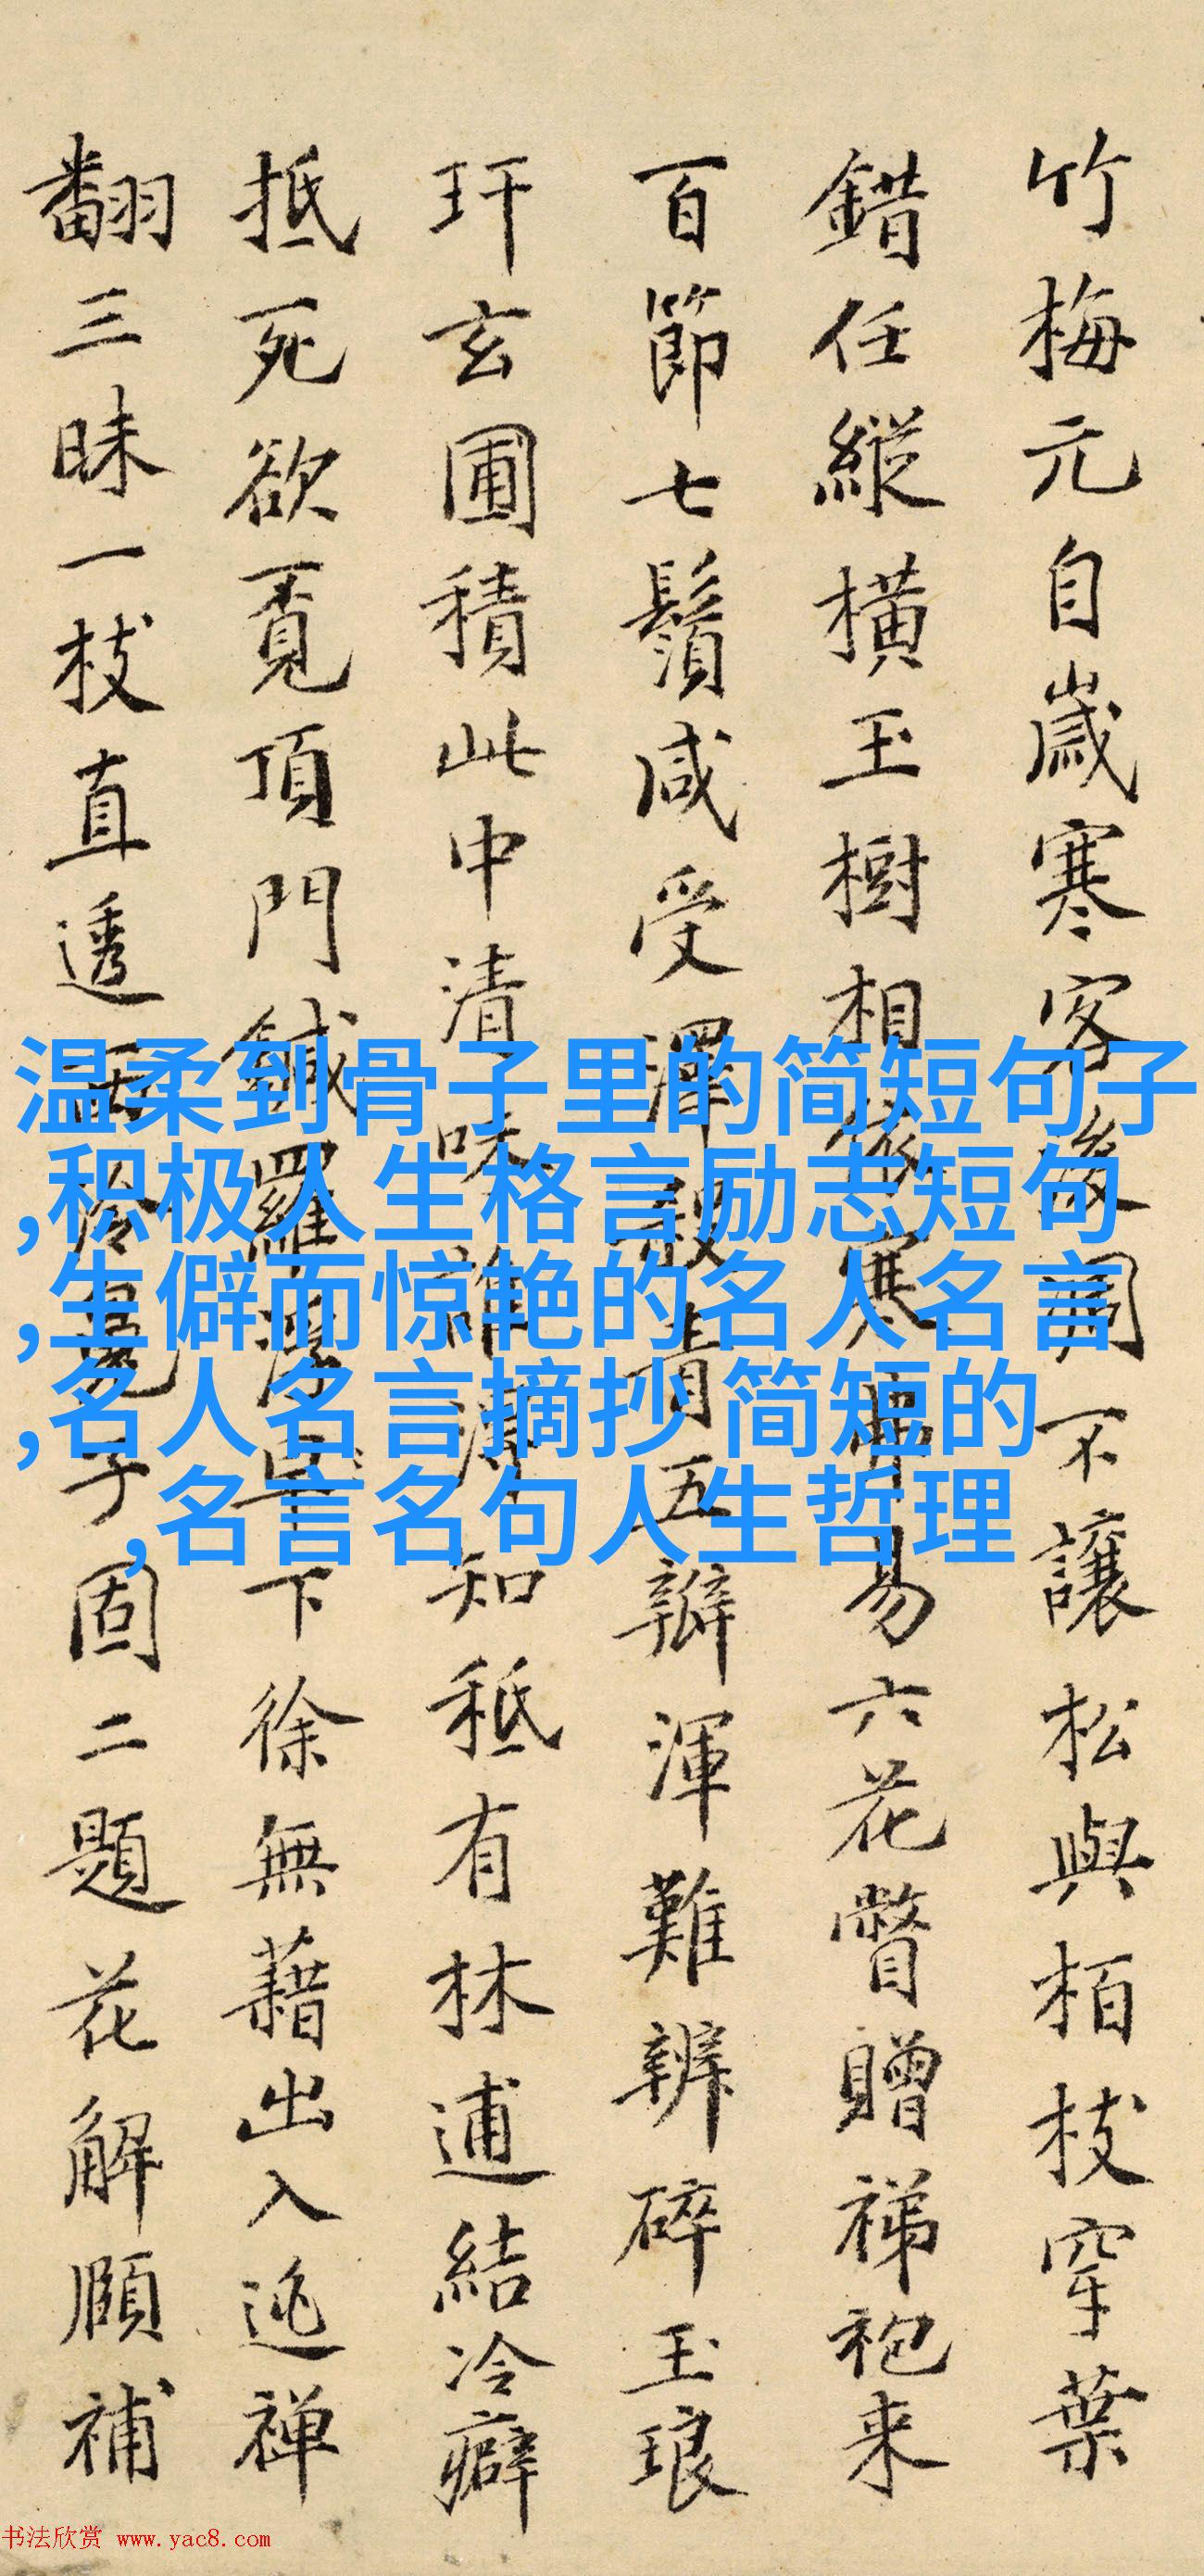 竹梅元自歲寒客後凋不讓松與栢枝穿葉
錯任縱橫玉樹相依寒易六花瞥贈祶袍来
百節七鬚咸受澤青五辦渾難辨碎玉琅
玕玄圃積此中清味誰知秪有林逋結冷癖
抵死欲覔頂門鍼羅下徐無藉出入逃禅
翻三昧一枝直透子固二題花解頤補
温柔到骨子里的简短句子
,积极人生格言励志短句
,生僻而惊艳的名人名言
,名人名言摘抄 简短的
,名言名句人生哲理
书法欣赏 www.yac8.com